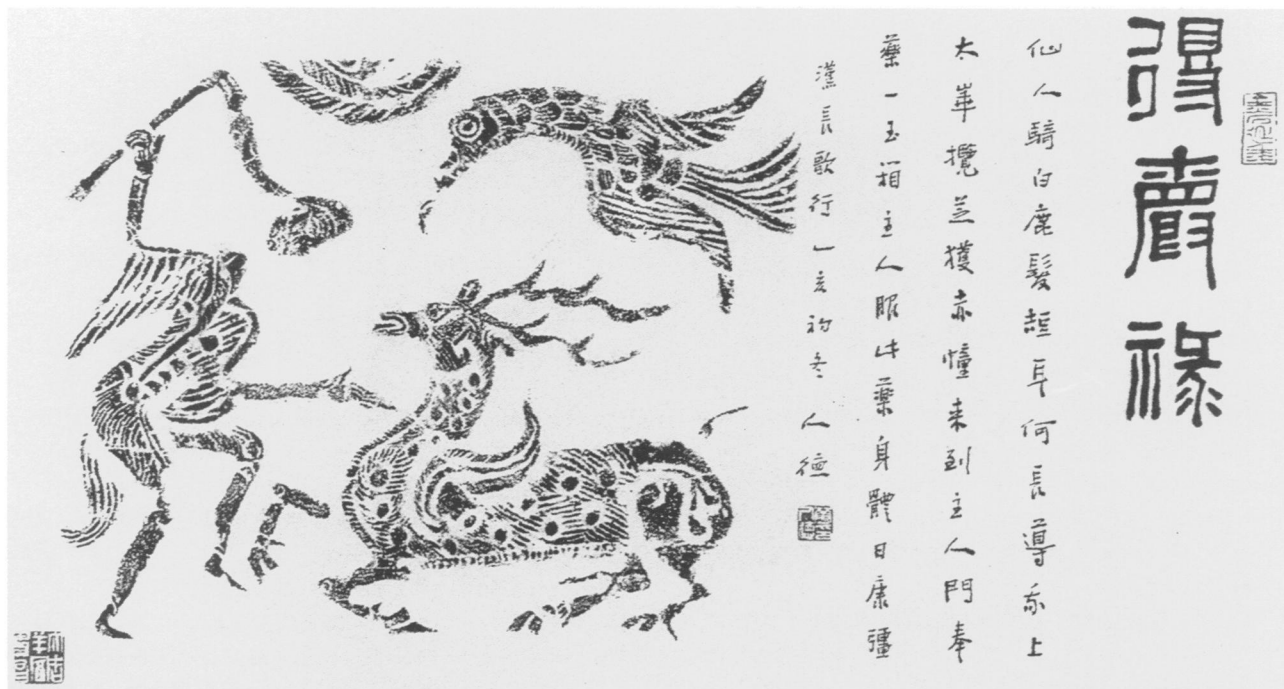 得爵祿
仙人騎白鹿髮短耳何長導我上
太崋攬芝獲赤幢来到主人門奉
藥一玉箱主人服此藥身體日康彊
漢長歌行乙亥初冬人德